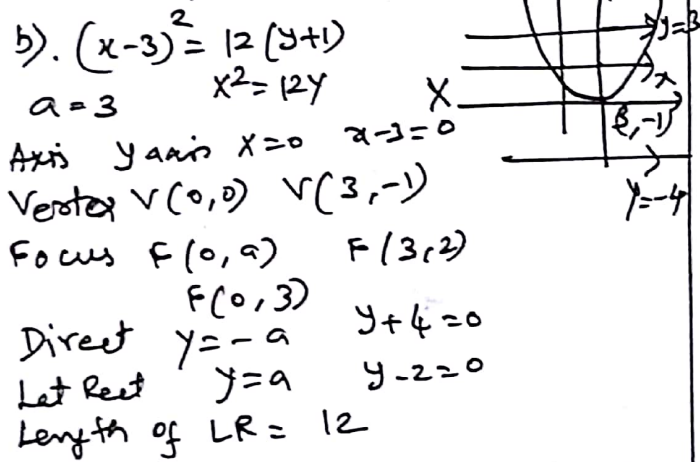 b). (x-3)² = 12 (y+1)
a = 3 X² = 12Y
Axis y axis X=0 x-3=0
Vertex V(0,0) V(3,-1)
Focus F(0,a) F(3,2)
F(0,3)
Direct y=-a y+4=0
Lat Rect y=a y-2=0
Length of LR = 12
y=3
x
X
(3,-1)
y=-4